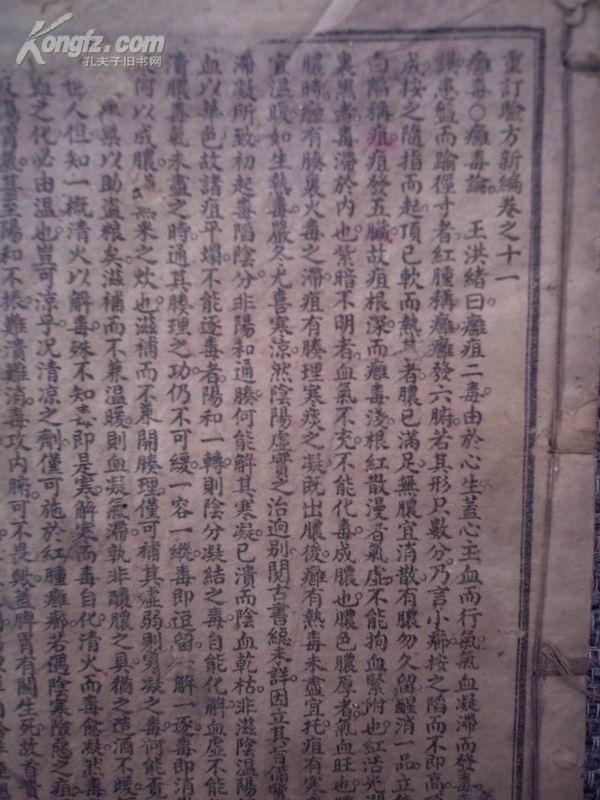 Kongfz.com
孔夫子旧书网
重訂驗方新編卷之十一
癰毒○癰毒論。 王洪緒曰癰疽二毒由於心生蓋心主血而行氣氣血凝滯而發毒
患盤而踰徑寸者紅腫稱癰癰發六腑若其形只數分乃言小癤按之陷而不即高
成按之隨指而起頂已軟而熱者膿已滿足無膿宜消散有膿勿久留醒消一品立
白陷稱疽疽發五臟故疽根深而癰毒淺根紅散漫者氣虛不能拘血緊附也紅活光
裏黑者毒滯於內也紫暗不明者血氣不充不能化毒成膿也膿色膿厚者氣血旺也
膿時癰有腠裏火毒之滯疽有腠理寒痰之凝既出膿後癰有熱毒未盡宜托疽有寒
宜溫暖如生熱毒嚴冬尤喜寒涼然陰陽虛實之治迥別閱古書總未詳因立其旨
滯凝所致初起毒陷陰分非陽和通腠何能解其寒凝已潰而陰血乾枯非滋陰溫陽
血以華色故諸疽平塌不能逐毒者陽和一轉則陰分凝結之毒自能化解血虛不能
潰膿毒氣未盡之時通其腠理之功仍不可緩一容一縱毒即逗留一解一逐毒即消
何以成膿 無米之炊也滋補而不兼開腠理僅可補其虛弱則寒凝之毒何能
粱以助盜糧矣滋補而不兼溫暖則血凝氣滯孰非釀膿之具猶之造酒不暖
世人但知一概清火以解毒殊不知毒即是寒解寒而毒自化清火而毒愈凝然毒
血之化必由溫也豈可涼乎况清涼之劑僅可施於紅腫癰癤若遇陰寒險惡之疽
傷胃氣甚至陽和不振難潰難消毒攻內腑可不畏歟蓋脾胃有關生死故首貴